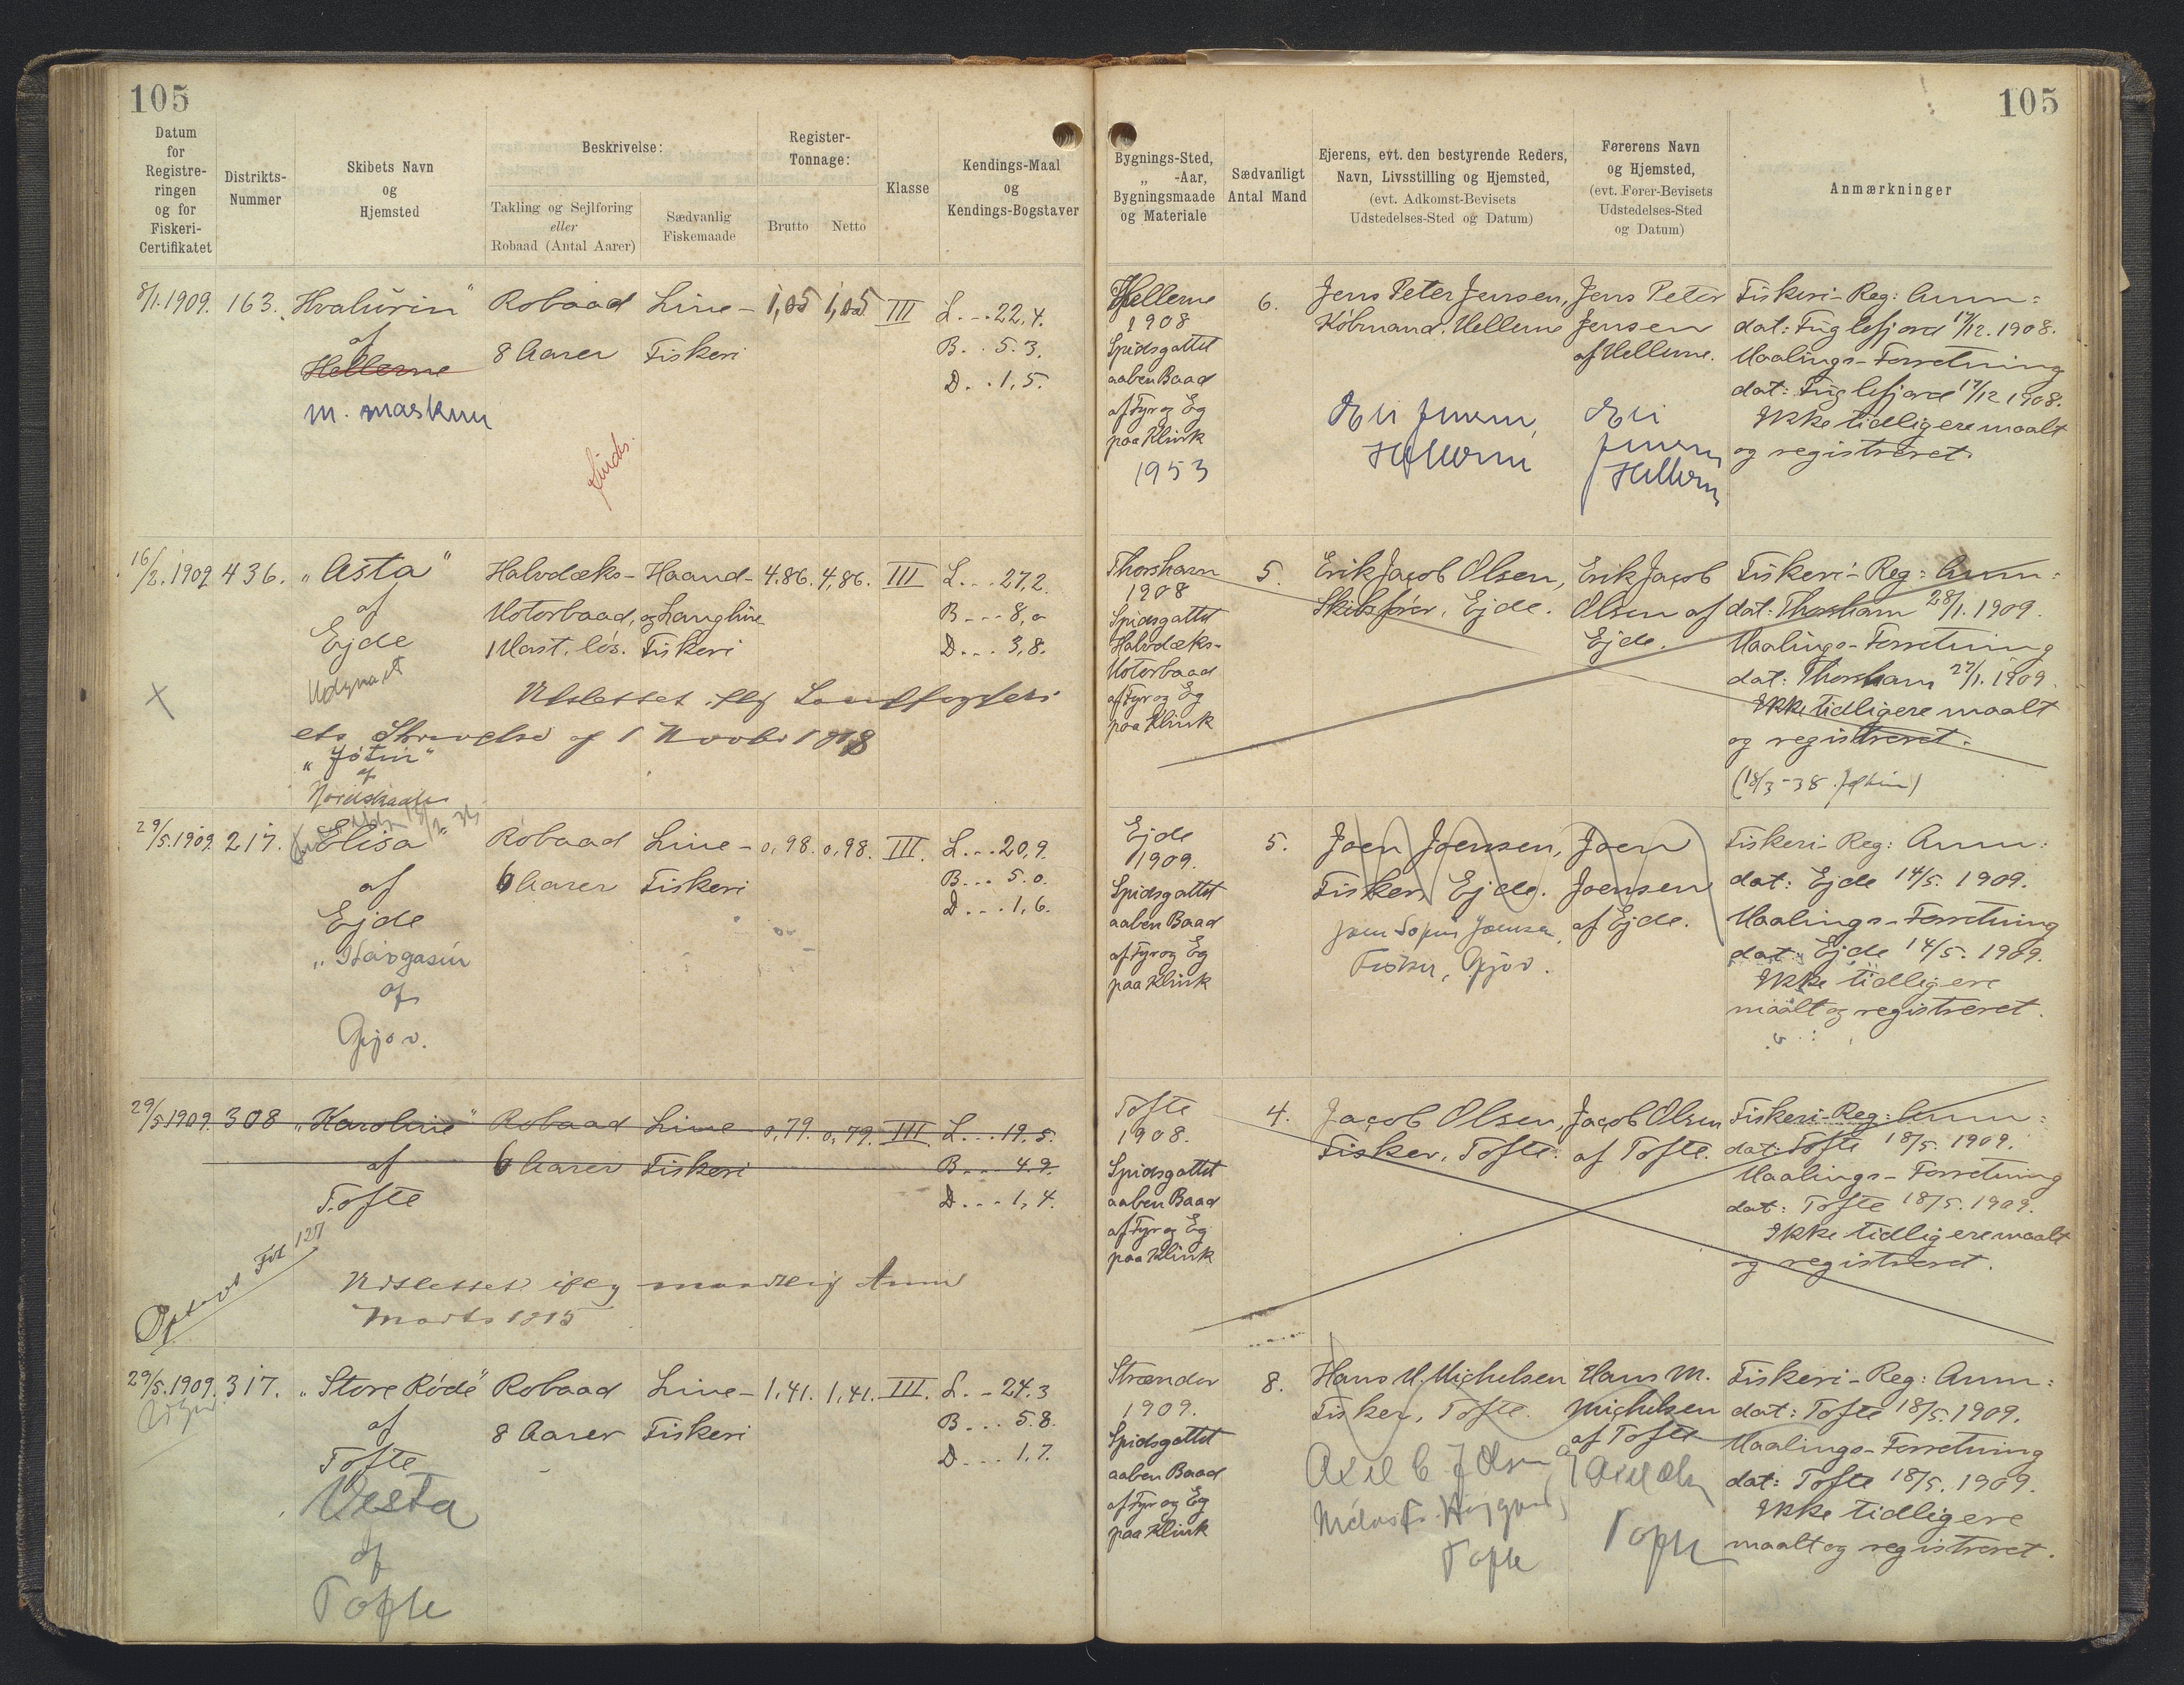 105
105
Datum
for
Registre-
ringen
og for
Fiskeri-
Certifikatet
Distrikts-
Nummer
Skibets Navn
og
Hjemsted
Beskrivelse:
Takling og Sejlføring
eller
Robaad (Antal Aarer)
Sædvanlig
Fiskemaade
Register-
Tonnage:
Brutto
Netto
Klasse
Kendings-Maal
og
Kendings-Bogstaver
Bygnings-Sted,
„ -Aar,
Bygningsmaade
og Materiale
Sædvanligt
Antal Mand
Ejerens, evt. den bestyrende Reders,
Navn, Livsstilling og Hjemsted,
(evt. Adkomst-Bevisets
Udstedelses-Sted og Datum)
Førerens Navn
og Hjemsted,
(evt. Fører-Bevisets
Udstedelses-Sted
og Datum)
Anmærkninger
8/1.1909.
163.
„Hvalurin"
af
Hellerne
m. maskun
Robaad
8 Aarer
Line-
Fiskeri
1,05
1,05
III
L...22,4.
B...5.3.
D...1,5.
Hellerne
1908
Spidsgattet
aaben Baad
af Fyr og Eg
paa Klink
1953
6.
Jens Peter Jensen,
Købmand. Hellerne
Jens Peter
Jensen
af Hellerne.
Fiskeri-Reg: Anm:
dat: Fuglefjord 17/12.1908.
Maalings-Forretning
dat: Fuglefjord 17/12 1908.
Ikke tidligere maalt
og registreret.
16/2.1909
436.
„Asta"
af
Ejde
„Jótin"
af
Halvdæks-
Motorbaad,
1 Mast. løs.
Haand-
og Langline
Fiskeri
4.86.
4,86.
III
L...27,2.
B...8,0
D...3,8.
Udslettet iflg Landfogderi
ets Skrivelse af 1 Novbr 1918
Thorshavn
1908
Spidsgattet
Halvdæks-
Motorbaad
af Fyr og Eg
paa Klink
5.
Erik Jacob Olsen,
Skibsfører, Ejde.
Erik Jacob
Olsen af
Ejde.
Fiskeri-Reg: Anm:
dat: Thorshavn 28/1.1909.
Maalings-Forretning
dat: Thorshavn 27/1.1909.
Ikke tidligere maalt
og registreret.
29/5.1909.
217.
„Elisa"
af
Ejde
af
Gjov.
Robaad
6 Aarer
Line-
Fiskeri
0,98.
0,98.
III.
L...20,9.
B...5.0.
D...1,6.
Ejde
1909.
Spidsgattet
aaben Baad
af Fyr og Eg
paa Klink
5.
Joen Joensen,
Fisker, Ejde.
Fisker, Gjov.
Joen
Joensen
af Ejde.
Fiskeri-Reg: Anm:
dat: Ejde 14/5. 1909.
Maalings-Forretning
dat: Ejde 14/5. 1909.
Ikke tidligere
maalt og registreret.
29/5.1909.
308
„Karoline"
af
Tofte
Robaad
6 Aarer
Line
Fiskeri
0,79.
0,79.
III
L...19,5.
B...4.9.
D...1,4.
Fol 127
Udslettet iflg mundtlig Anm
Marts 1915
Tofte
1908.
Spidsgattet
aaben Baad
af Fyr og Eg
paa Klink
4.
Jacob Olsen,
Fisker, Tofte.
Jacob Olsen
af Tofte.
Fiskeri-Reg: Anm:
dat: Tofte 18/5. 1909.
Maalings-Forretning
dat: Tofte 18/5. 1909.
Ikke tidligere maalt
og registreret.
29/5.1909.
317.
„Store Røde"
af
Tofte
Vesta
af
Tofte
Robaad
8 Aarer
Line-
Fiskeri
1,41.
1,41.
III.
L.-24.3
B...5.8.
D...1,7.
Strænder
1909.
Spidsgattet
aaben Baad
af Fyr og Eg
paa Klink
8.
Hans M. Michelsen
Fisker, Tofte.
Tofte
Hans M.
Michelsen
af Tofte
Tofte
Fiskeri-Reg: Anm:
dat: Tofte 18/5.1909.
Maalings-Forretning
dat: Tofte 18/5. 1909.
Ikke tidligere
maalt og registreret.